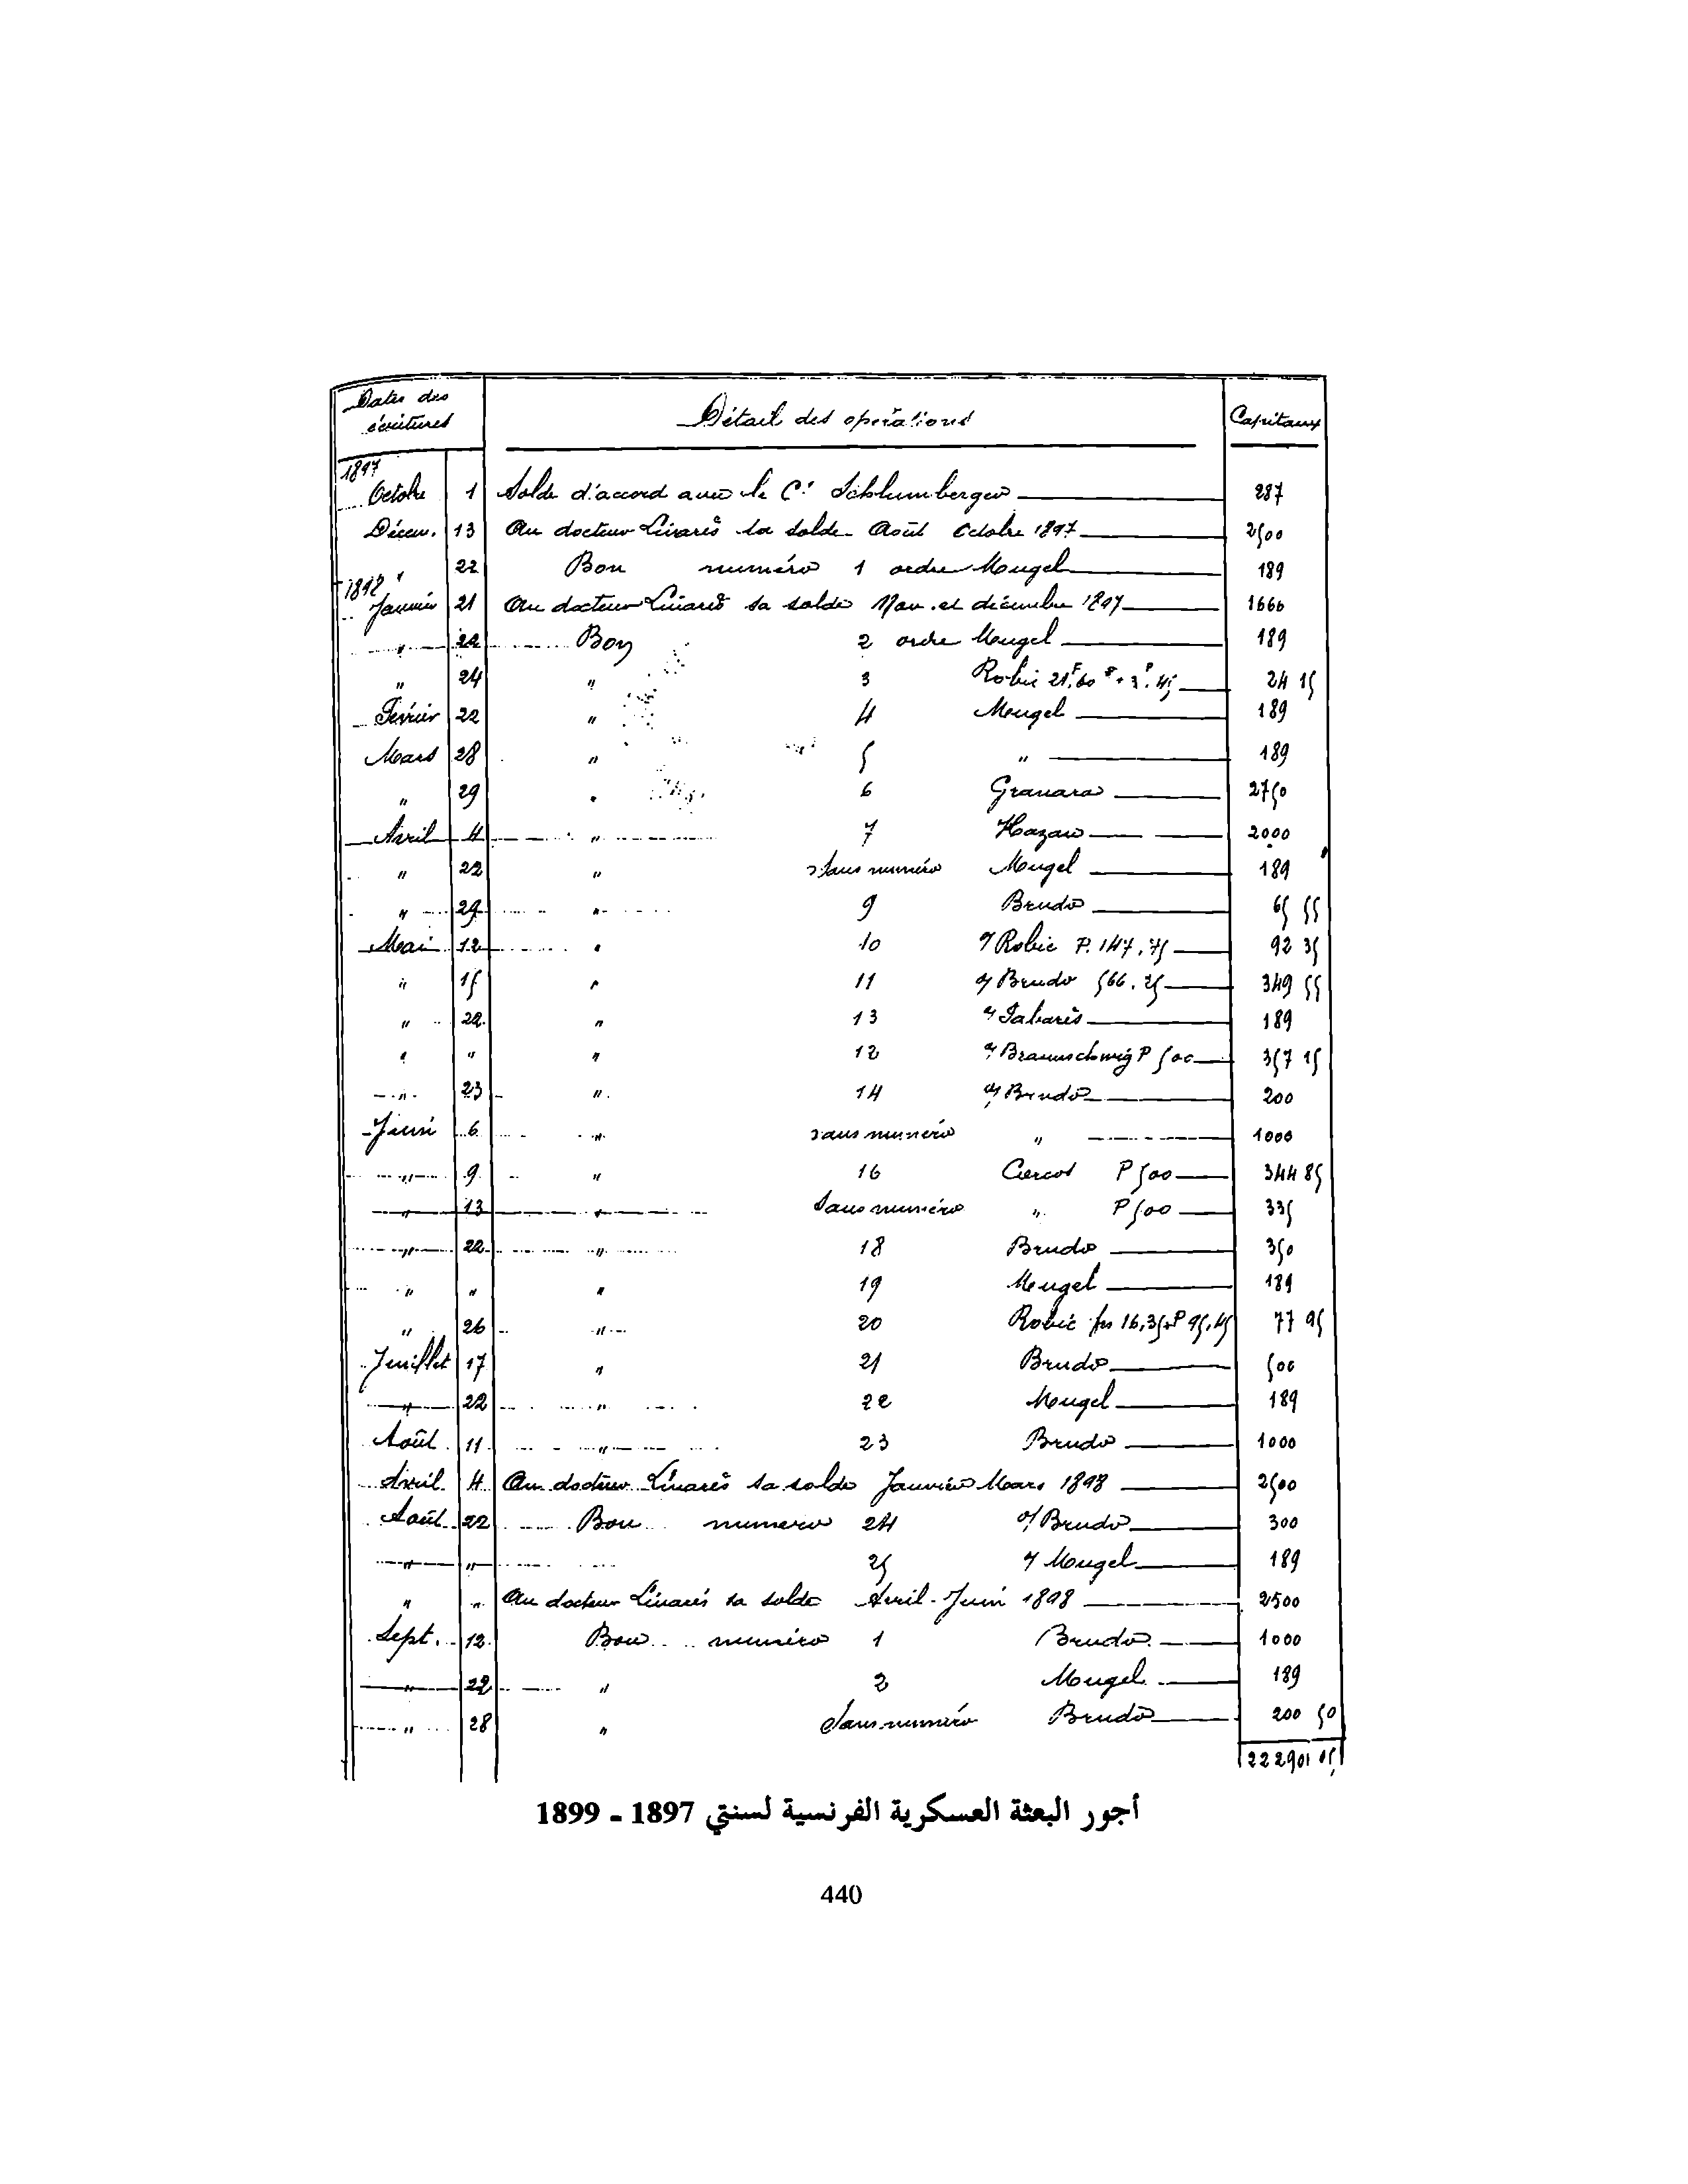 Dates des écritures | Détail des opérations | Capitaux
1897
Octobre 1 Solde d'accord avec le Ct Schlumberger 287
Décem. 13 Au docteur Linarès sa solde Août Octobre 1897 2500
" 22 Bon numéro 1 ordre Mougel 189
1898
Janvier 21 Au docteur Linarès sa solde Nov. et décembre 1897 1666
" 22 Bon 2 ordre Mougel 189
" 24 " 3 Robic 21F.60 + 3P.45 24 15
Février 22 " 4 Mougel 189
Mars 28 " 5 " 189
" 29 " 6 Granara 2750
Avril 4 " 7 Hazan 2000
" 22 " Sans numéro Mougel 189
" 29 " 9 Brudo 65 55
Mai 12 " 10 o/ Robic P. 147.75 92 35
" 15 " 11 o/ Brudo 566.25 349 55
" 22 " 13 o/ Tabarès 189
" " " 12 o/ Braunschwig P 500 357 15
" 23 " 14 o/ Brudo 200
Juin 6 " sans numéro " 1000
" 9 " 16 Cercot P 500 344 85
" 13 " Sans numéro " P 500 335
" 22 " 18 Brudo 350
" " " 19 Mougel 189
" 26 " 20 Robic frs 16,35+P 95,45 77 95
Juillet 17 " 21 Brudo 500
" 22 " 22 Mougel 189
Août 11 " 23 Brudo 1000
Avril 4 Au docteur Linarès sa solde Janvier Mars 1898 2500
Août 22 Bon numero 24 o/ Brudo 300
" " 25 o/ Mougel 189
" " Au docteur Linarès sa solde Avril-Juin 1898 2500
Sept. 12 Bon numéro 1 Brudo 1000
" 22 " 2 Mougel 189
" 28 " Sans numéro Brudo 200 50
222901 05
أجور البعثة العسكرية الفرنسية لسنتي 1897 - 1899
440